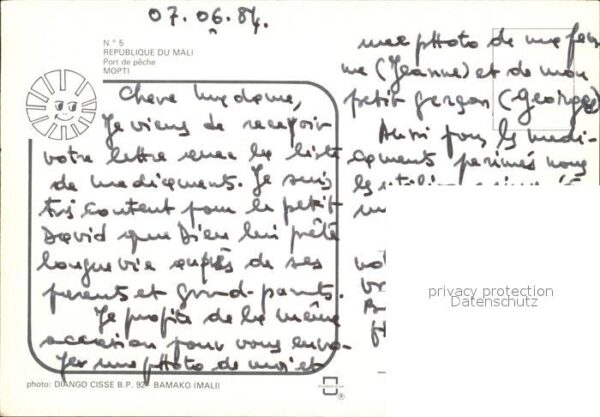 07.06.84.
N.° 5
REPUBLIQUE DU MALI
Port de pêche
MOPTI
Chere madame,
Je viens de recevoir
votre lettre avec la liste
de medicaments. Je suis
très content pour le petit
David que Dieu lui prête
longue vie auprès de ses
parents et grand-parents.
Je profite de la même
occasion pour vous envo-
yer une photo de moi et
une photo de ma fem
me (Jeanne) et de mon
petit garçon (Georges)
Aussi pour les medi-
caments perimés nous
les
privacy protection
Datenschutz
photo: DIANGO CISSE B.P. 92 - BAMAKO (MALI)